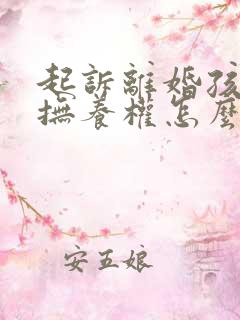 起訴離婚孩
撫養權怎麼
安五娘